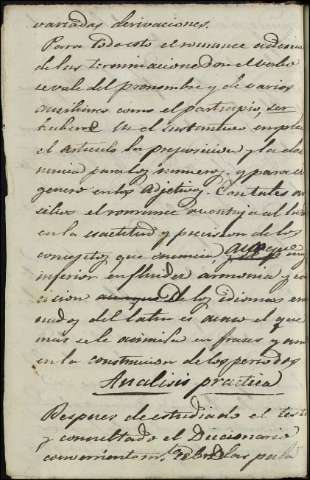 variadas derivaciones.
Para todo esto el romance ademas
de las terminaciones con el verbo
se vale del pronombre y de varios
auxiliares como el participio, ser
haber &. En el sustantivo emplea
el articulo la preposicion y la
para los numeros, y para el
genero en los adjetivos. Con tales
el romance aventaja al
en la exactitud y precision de los
conceptos que enuncia, aunque
inferior en fluidez armonia y
aunque De los idiomas
del latin es el que
mas se le asimila en frases y aun
en la construccion de los periodos
Analisis practica
Despues de estudiado el
y consultado el Diccionario
convenientem.te sobre las